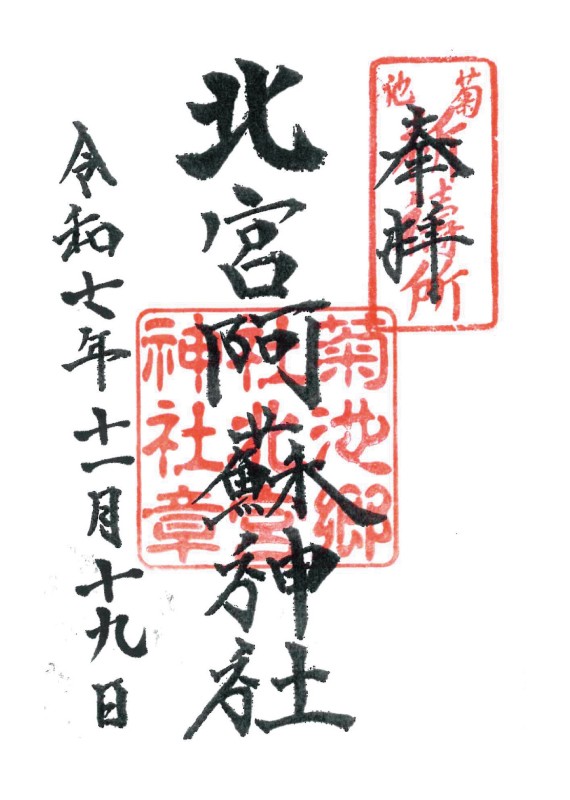 奉拝
菊池
祈祷所
北宮阿蘇神社
菊池郷
社北宮
神社章
令和七年十一月十九日